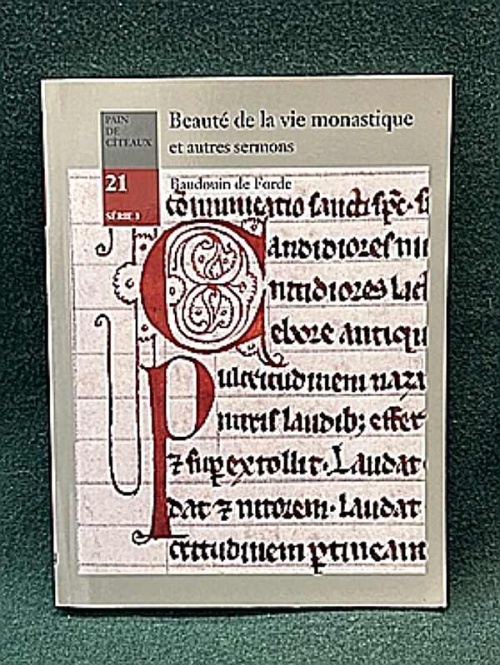 PAIN
DE
CÎTEAUX
21
SÉRIE 3
Beauté de la vie monastique
et autres sermons
Baudouin de Forde
andidiores ni
ntidiores lact
ebore antiqu
ulcritudinem naza
puritis laudib; effert
⁊ superextollit. Laudat
dat ⁊ nitorem. Laudat
certitudinem ptineant